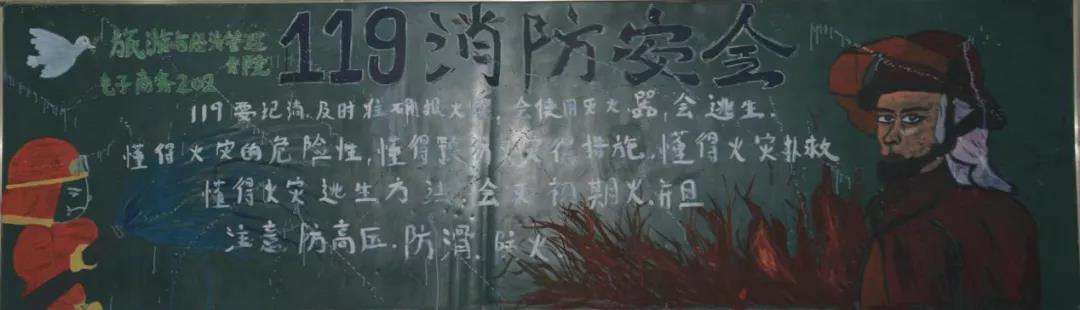 旅游与经济管理
学院
电子商务202
119消防安全
119要记清,及时准确报火警,会使用灭火器,会逃生.
懂得火灾的危险性,懂得预防火灾措施,懂得火灾扑救
懂得火灾逃生方法,会灭初期火.并且
注意防高压.防滑.防火